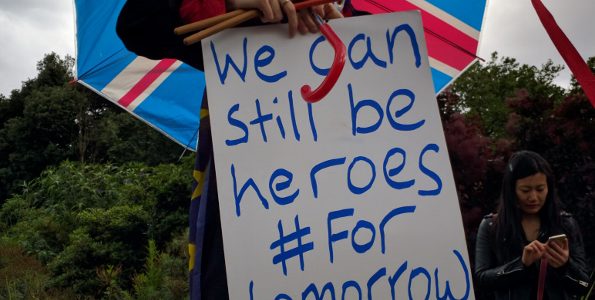 We can
still be
heroes
# For
tomorrow